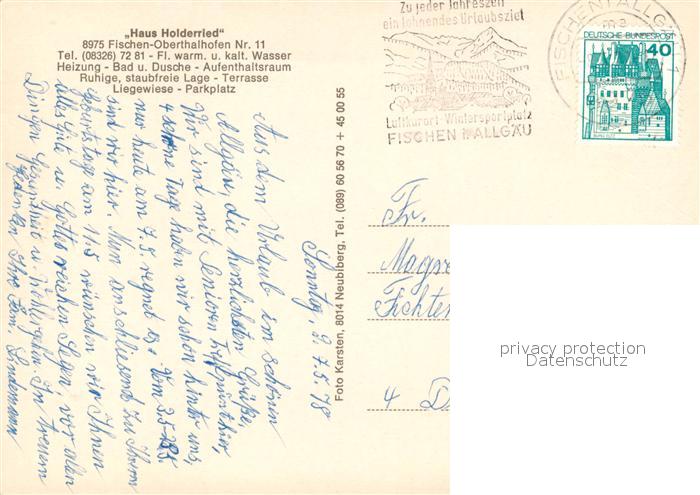 „Haus Holderried“
8975 Fischen-Oberthalhofen Nr. 11
Tel. (08326) 72 81 - Fl. warm. u. kalt. Wasser
Heizung - Bad u. Dusche - Aufenthaltsraum
Ruhige, staubfreie Lage - Terrasse
Liegewiese - Parkplatz
Zu jeder Jahreszeit
ein lohnendes Urlaubsziel
Luftkurort · Wintersportplatz
FISCHEN i. ALLGÄU
FISCHEN I ALLGÄU
DEUTSCHE BUNDESPOST
40
BURG ELTZ
Foto Karsten, 8014 Neubiberg, Tel. (089) 60 56 70 + 45 00 55
Sonntag, 7.5.78
Aus dem Urlaub im schönen
Allgäu, die herzlichsten Grüße.
Wir sind mit Senioren hier,
4 schöne Tage haben wir schon hinter uns,
nur heute am 7.5 regnet es. Vom 3.5-
sind wir hier. Nun anschliesend zu Ihrem
Geburtstag am 11.5 wünschen wir Ihnen
alles Gute u. Gottes reichen Segen, vor allen
Dingen Gesundheit u. In treuem
Gedenken Ihre Lindemann
Fr.
Fichten
4 D
privacy protection
Datenschutz